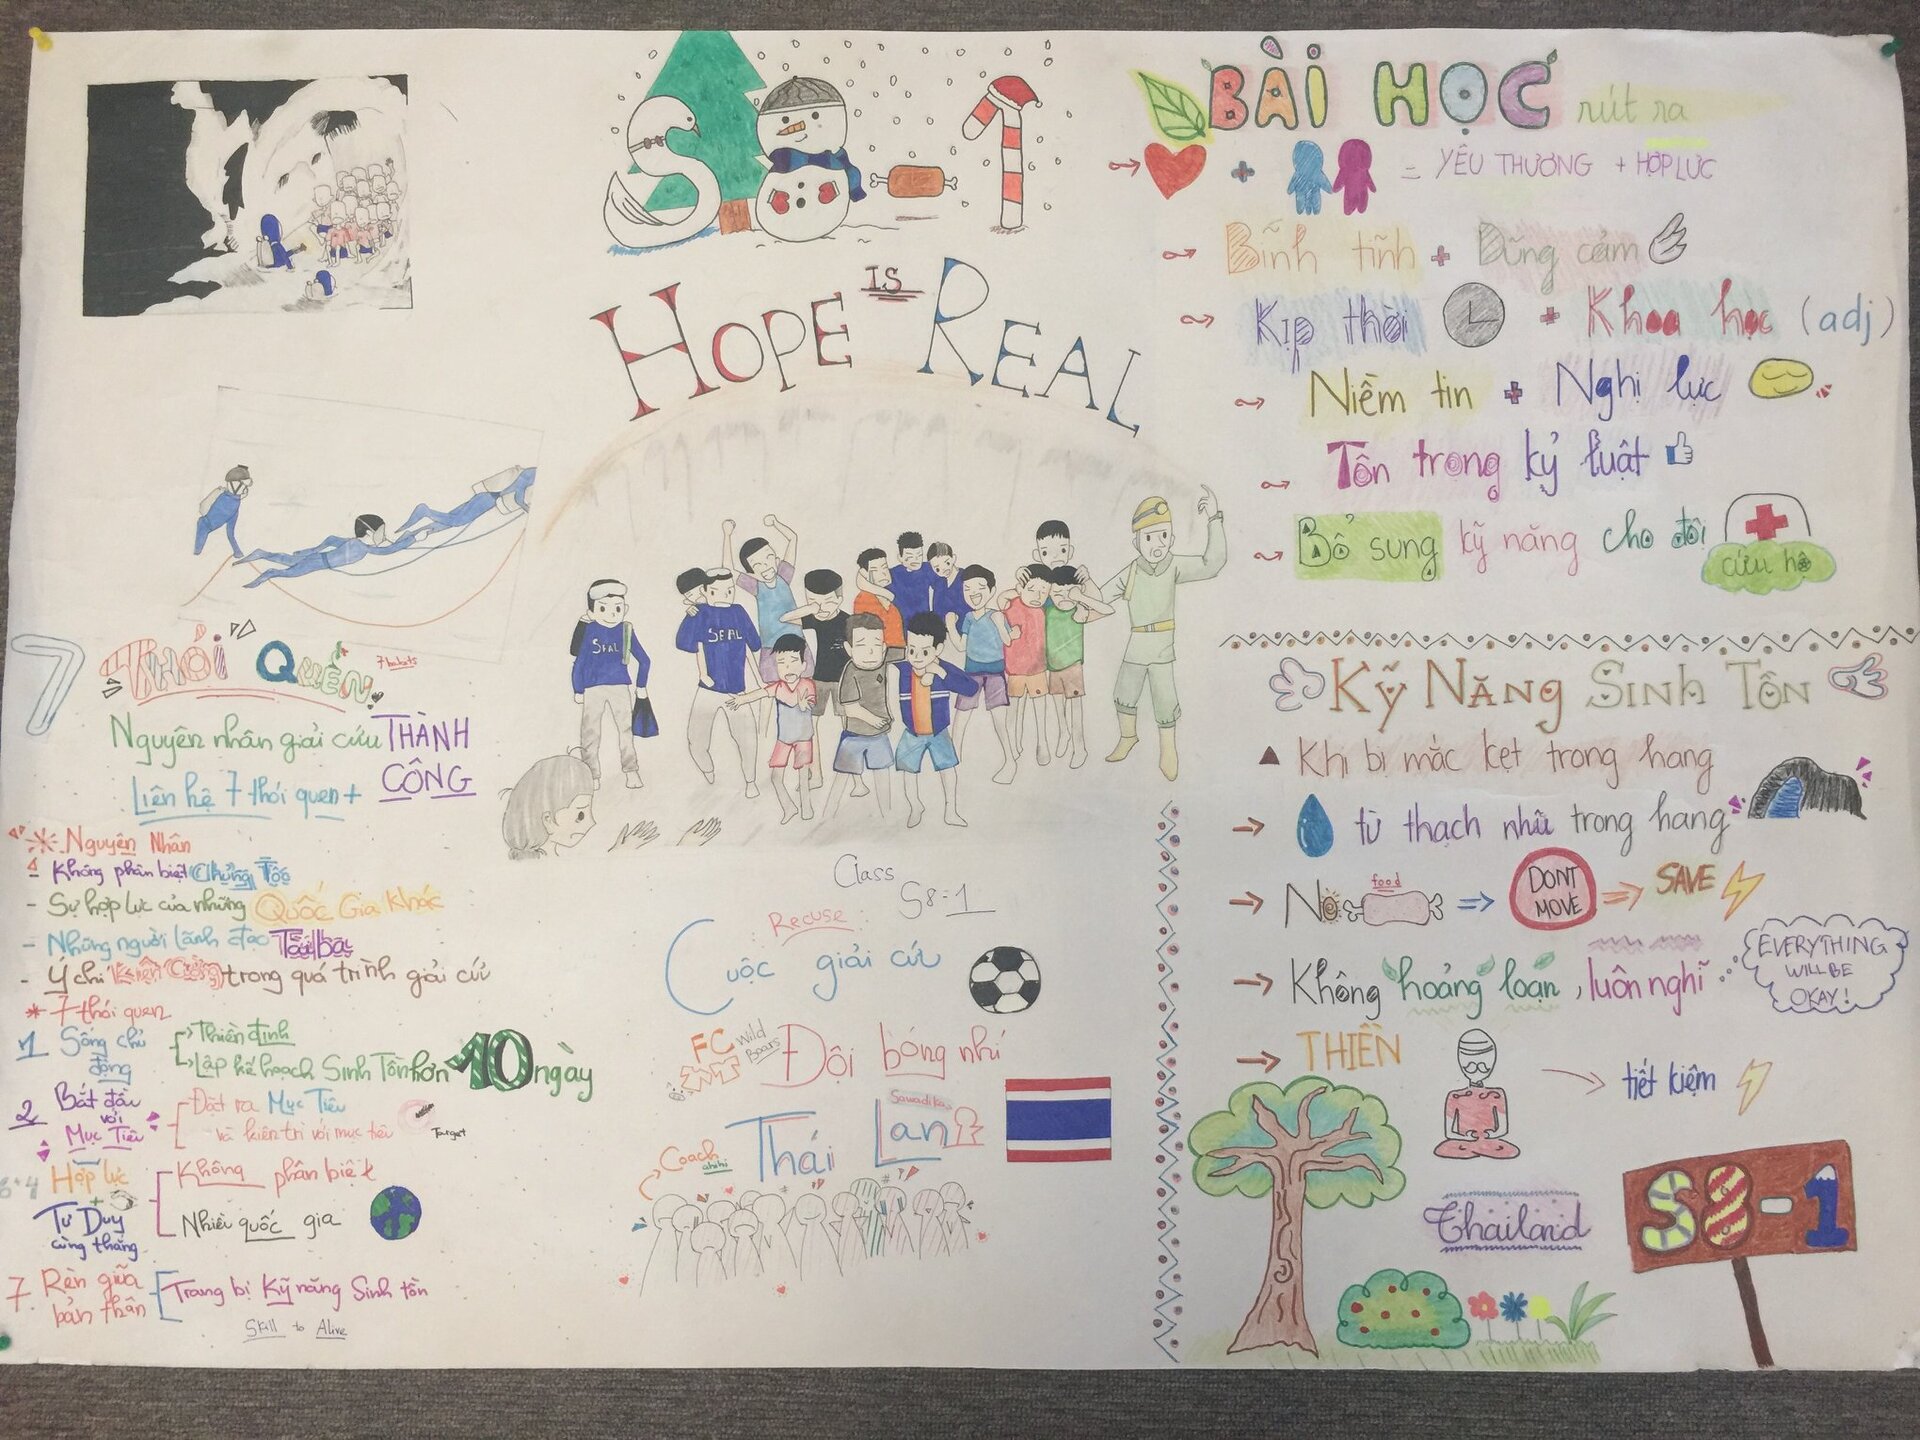 S8-1
HOPE IS REAL
SEAL
SEAL
7 THÓI QUEN
7 habits
Nguyên nhân giải cứu THÀNH CÔNG
Liên hệ 7 thói quen +
Nguyên Nhân
- Không phân biệt Chủng Tộc
- Sự hợp lực của những Quốc Gia Khác
- Những người lãnh đạo Tài ba
- Ý chí Kiên Cường trong quá trình giải cứu
* 7 thói quen
1 Sống chủ động
Thiền định
Lập kế hoạch Sinh Tồn hơn 10 ngày
2 Bắt đầu với Mục Tiêu
Đặt ra Mục Tiêu và kiên trì với mục tiêu
Target
6+4 Hợp lực + Tư Duy cùng thắng
Không phân biệt
Nhiều quốc gia
7. Rèn giũa bản thân
Trang bị Kỹ năng Sinh tồn
Skill to Alive
Class S8-1
Recuse:
Cuộc giải cứu
FC Wild Boars
Đội bóng nhí
Sawadika
Thái Lan
Coach
BÀI HỌC rút ra
+ = YÊU THƯƠNG + HỢP LỰC
Bình tĩnh + Dũng cảm
Kịp thời + Khoa học (adj)
Niềm tin + Nghị lực
Tôn trọng kỷ luật
Bổ sung kỹ năng cho đội cứu hộ
KỸ NĂNG SINH TỒN
Khi bị mắc kẹt trong hang
từ thạch nhũ trong hang
No food DONT MOVE SAVE
Không hoảng loạn, luôn nghĩ
EVERYTHING WILL BE OKAY!
THIỀN
tiết kiệm
Thailand
S8-1